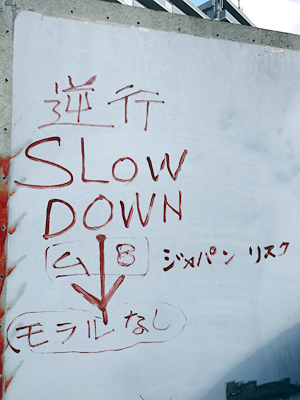 逆行
SLOW
DOWN
ム 8 ジャパン リスク
モラルなし